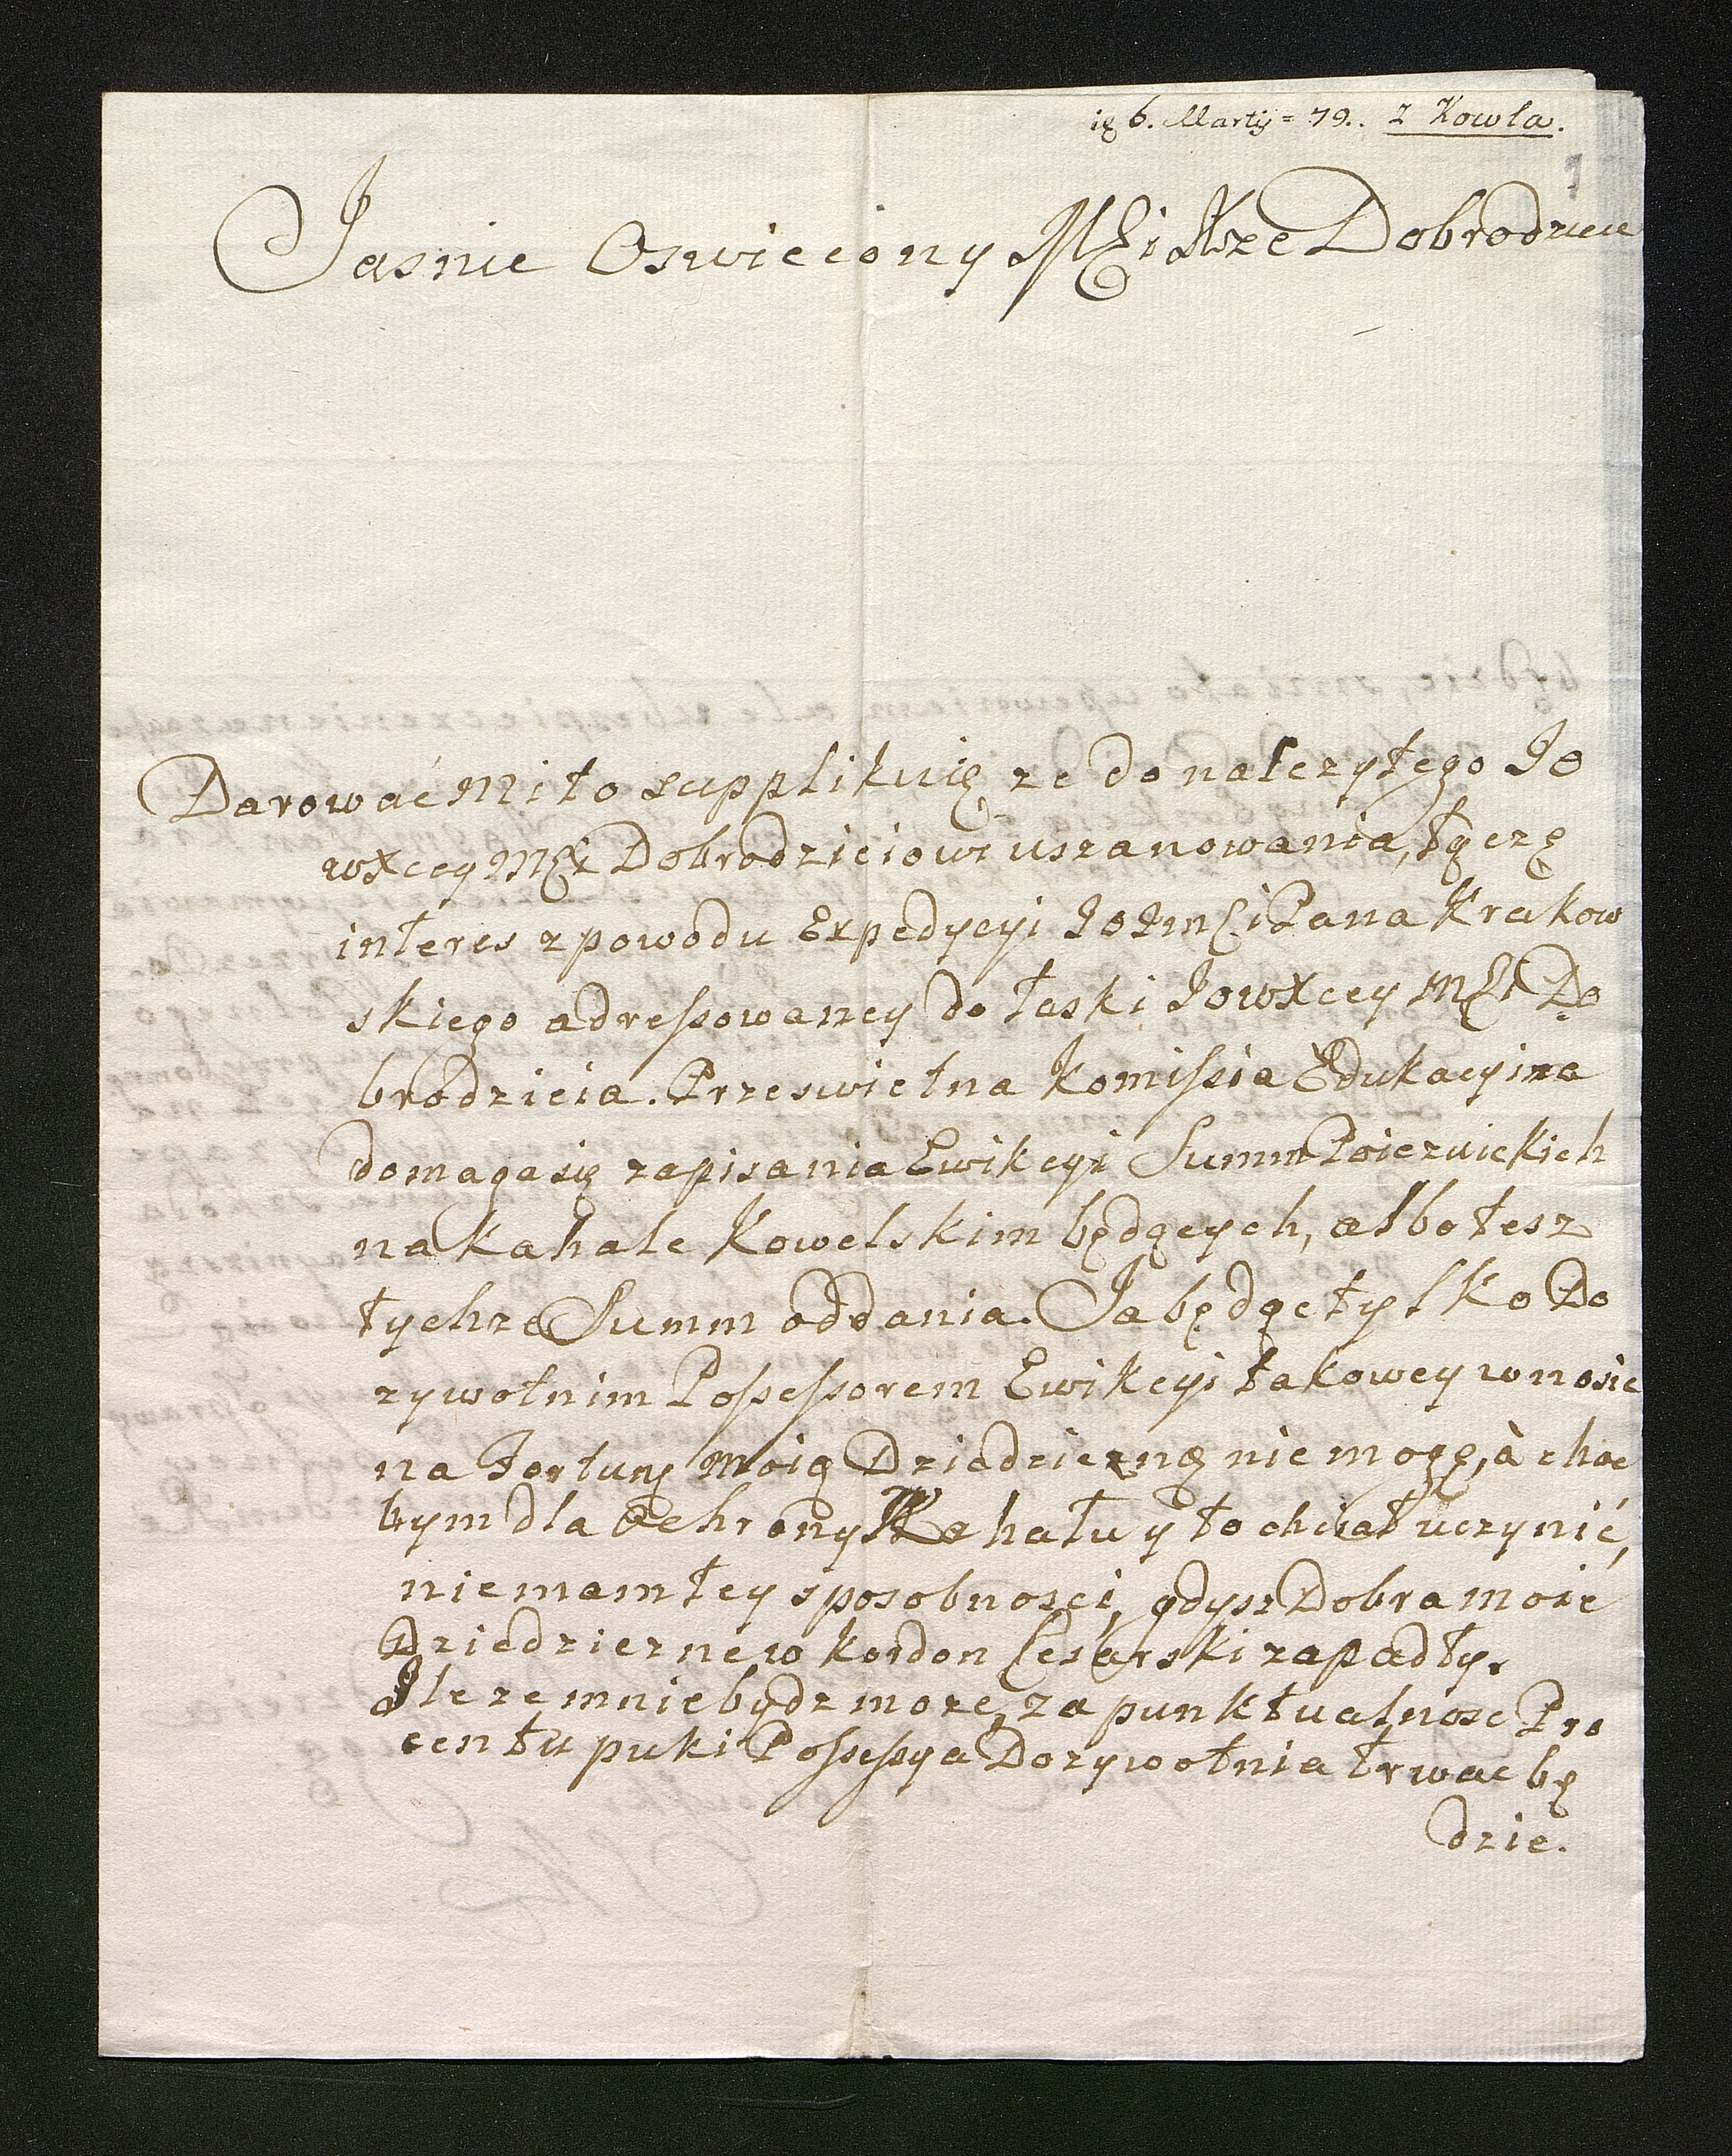 6. Martij = 79.. z Kowla.
Jasnie Oswiecony Mści Xże Dobrodzieiu
Darować mi to supplikuię że do należytego JO
WXcey Mści Dobrodzieiowi uszanowania, łączę
interes z powodu Expedycyi JO Jmści Pana Krakow
skiego adressowaney do łaski JOWXcey Mści Do
brodzieia. Przeswietna Komissia Edukacyina
domaga się zapisania Ewikcyi Summ Poiezuickich
na Kahale Kowelskim będących, albo tesz
tychże Summ oddania. Ja będąc tylko Do
zywotnim Possessorem Ewikcyi takowey wnosic
na Fortunę moią Dziedziczną nie mogę, à choc
bym dla ochrony Kahału y to chciał uczynić,
nie mam tey sposobnosci, gdysz Dobra moie
Dziedziczne w kordon Cesarski zapadły.
Ile ze mnie bydz moze, za punktualnosc Pro
centu puki Possessya Dozywotnia trwac bę
dzie.